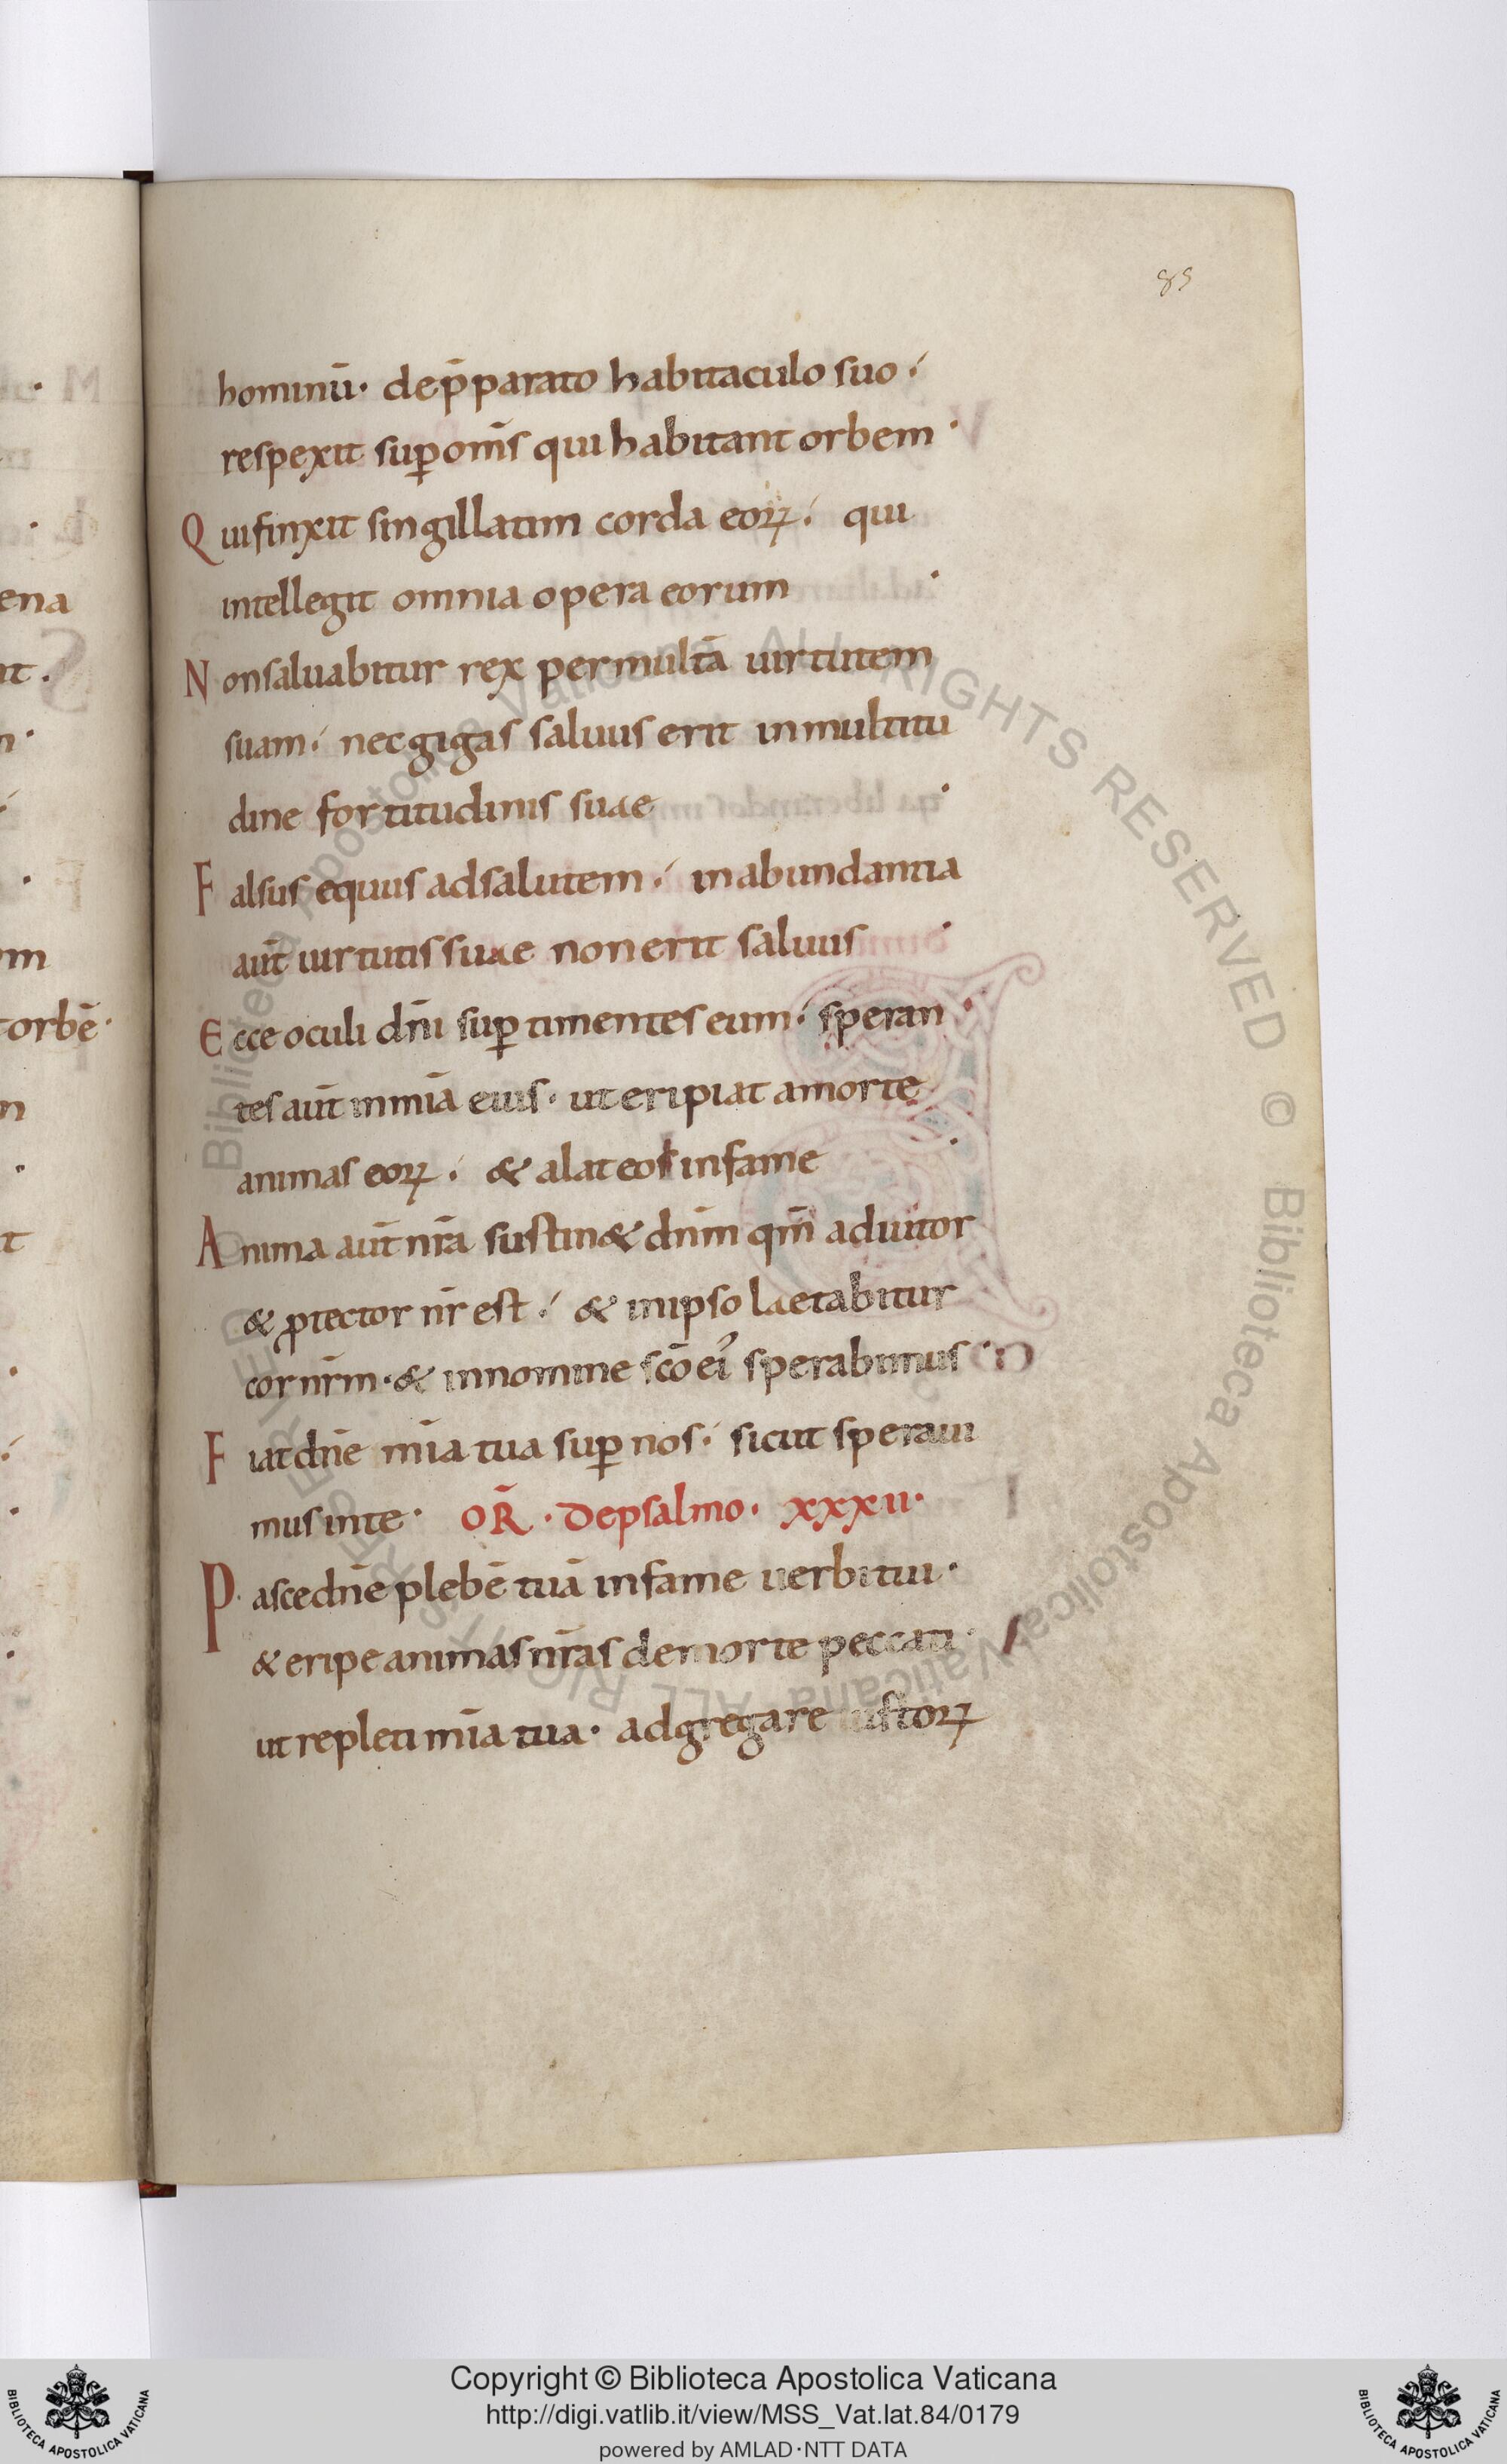 85
hominū· dep̄parato habitaculo suo·
respexit sup̲ om̄s qui habitant orbem·
Qui finxit singillatim corda eoꝝ· qui
intellegit omnia opera eorum·
Non saluabitur rex per multā uirtutem
suam· nec gigas saluus erit in multitu
dine fortitudinis suae·
Falsus equus ad salutem· in abundantia
aūt uirtutis suae non erit saluus·
Ecce oculi dn̄i sup̲ timentes eum· speran·
tes aūt in mīa eius· ut eripiat a morte
animas eoꝝ· & alat eos in fame·
Anima aūt nr̄a sustin& dn̄m qm̄ adiutor
& ꝓtector nr̄ est· & in ipso laetabitur
cor nr̄m· & in nomine sc̄o ei᾿ sperabimus·
Fiat dn̄e mīa tua sup̲ nos· sicut speraui
mus in te· OR̄· De psalmo· xxxii·
Pasce dn̄e plebē tuā in fame uerbi tui·
& eripe animas nr̄as de morte peccati·
ut repleti mīa tua· adgregare iustoꝝ
ena
orbē·
Biblioteca Apostolica Vaticana ALL RIGHTS RESERVED © Biblioteca Apostolica Vaticana ALL RIGHTS RESERVED ©
BIBLIOTECA APOSTOLICA VATICANA
Copyright © Biblioteca Apostolica Vaticana
http://digi.vatlib.it/view/MSS_Vat.lat.84/0179
powered by AMLAD·NTT DATA
BIBLIOTECA APOSTOLICA VATICANA